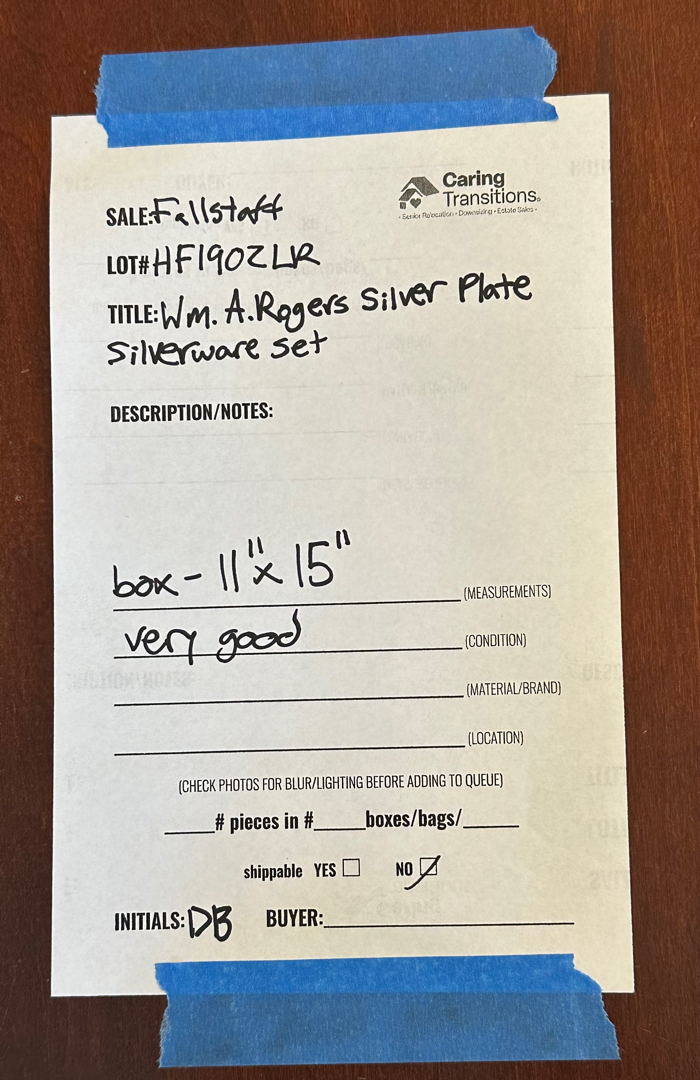 Caring
Transitions.
• Senior Relocation • Downsizing • Estate Sales •
SALE: Fallstaff
LOT# HF1902LR
TITLE: Wm. A. Rogers Silver Plate
Silverware set
DESCRIPTION/NOTES:
box - 11" x 15" (MEASUREMENTS)
very good (CONDITION)
(MATERIAL/BRAND)
(LOCATION)
(CHECK PHOTOS FOR BLUR/LIGHTING BEFORE ADDING TO QUEUE)
____# pieces in #____boxes/bags/____
shippable YES ☐ NO ☑
INITIALS: DB BUYER:____